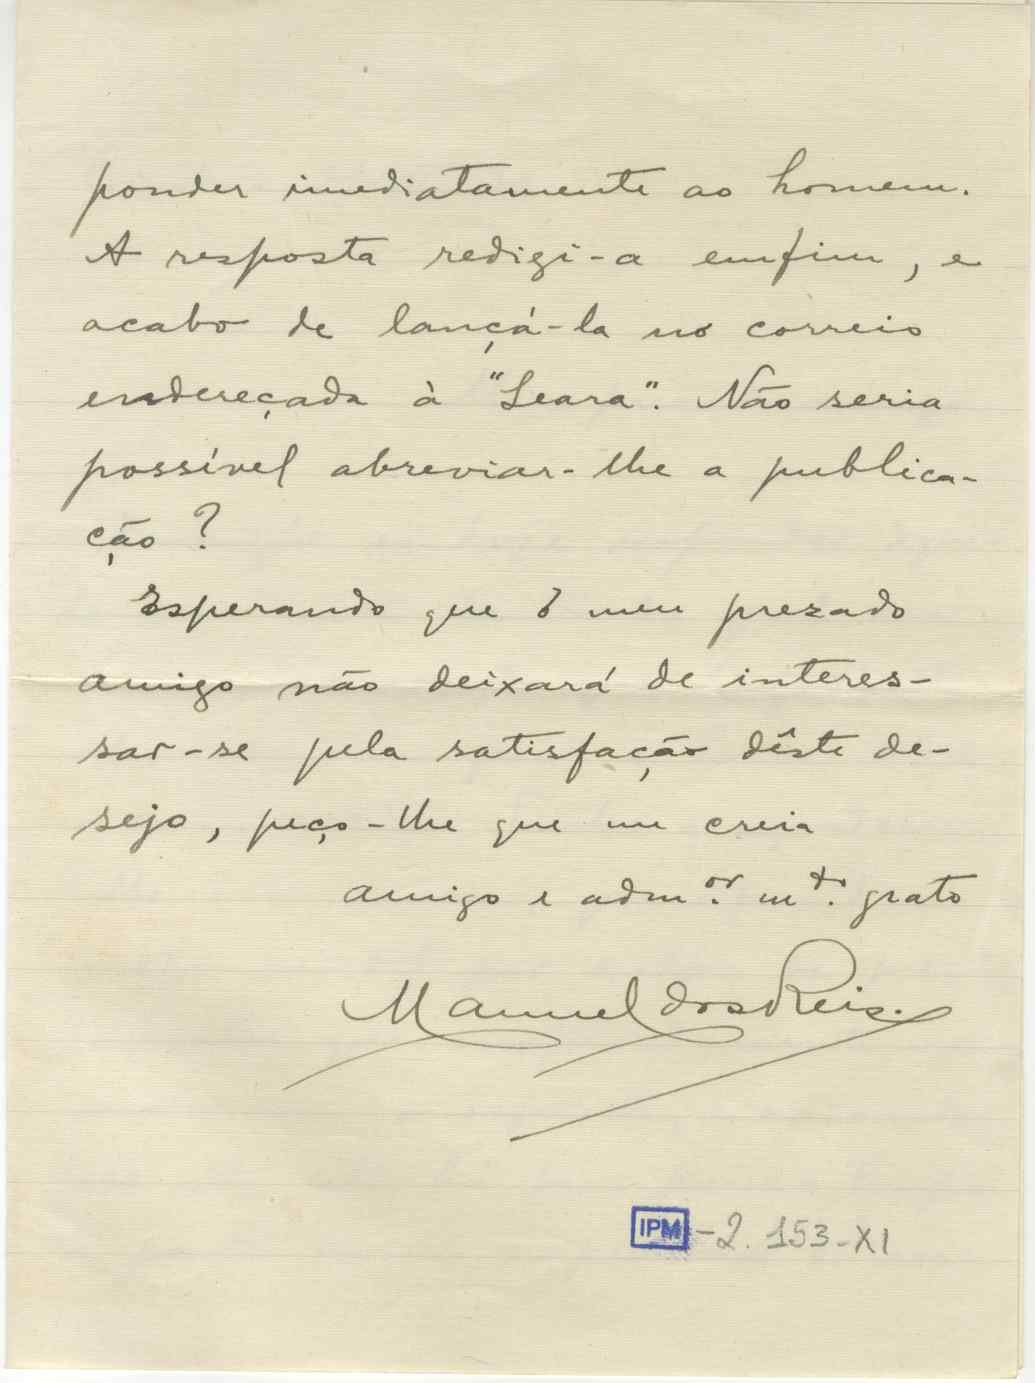 ponder imediatamente ao homem.
A resposta redigi-a emfim, e
acabo de lançá-la no correio
endereçada à "Seara". Não seria
possível abreviar-lhe a publica-
ção?
Esperando que o meu prezado
amigo não deixará de interes-
sar-se pela satisfação dêste de-
sejo, peço-lhe que me creia
amigo e adm.or m.to grato
Manuel dos Reis.
IPM-2.153-XI